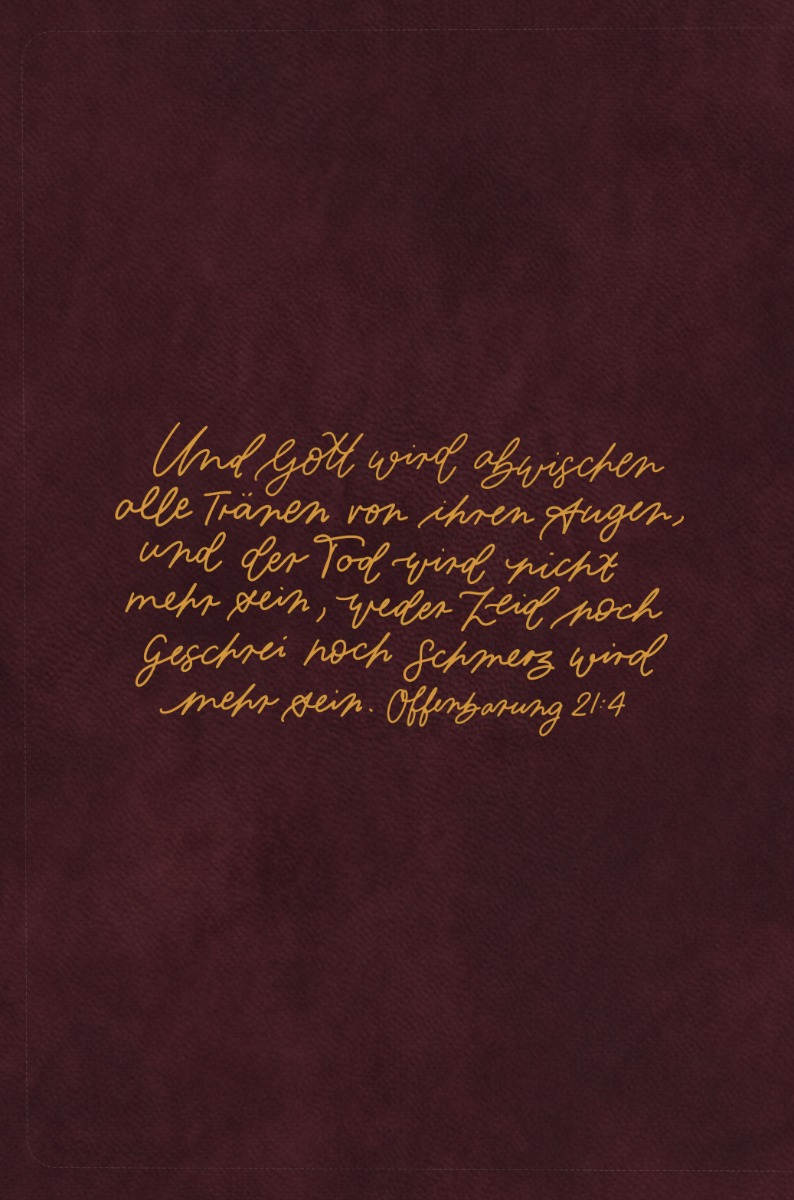 Und Gott wird abwischen
alle Tränen von ihren Augen,
und der Tod wird nicht
mehr sein, weder Leid noch
Geschrei noch Schmerz wird
mehr sein. Offenbarung 21:4